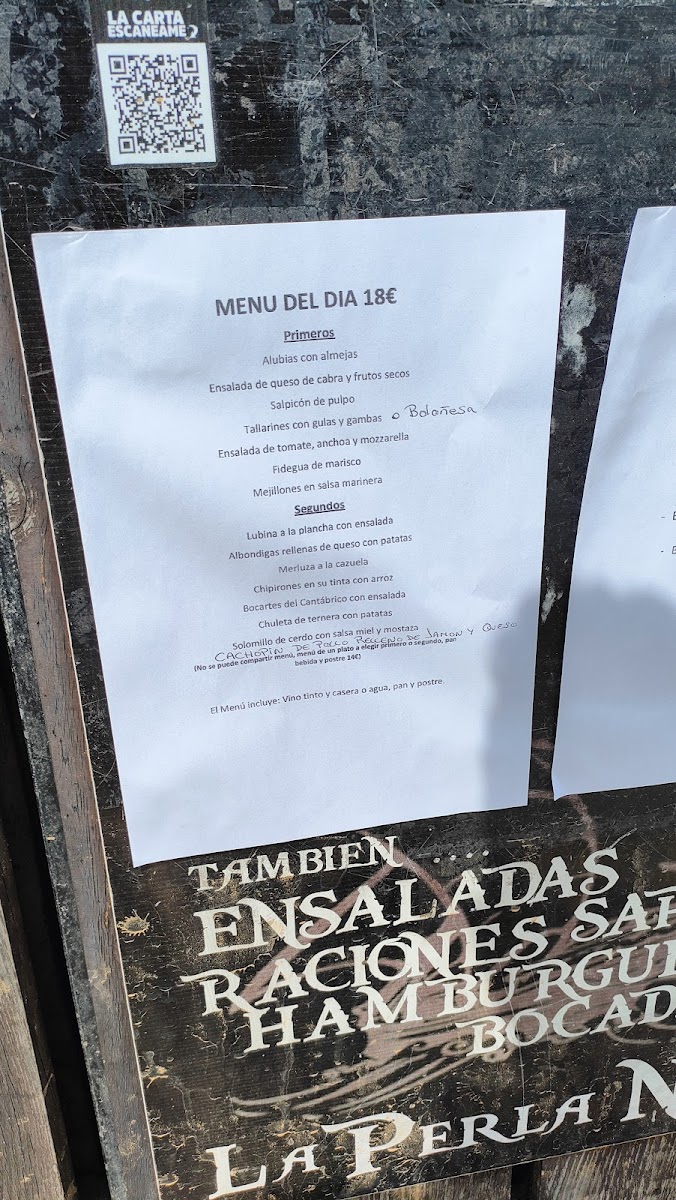 LA CARTA
ESCANEAME
MENU DEL DIA 18€
Primeros
Alubias con almejas
Ensalada de queso de cabra y frutos secos
Salpicón de pulpo
Tallarines con gulas y gambas o Boloñesa
Ensalada de tomate, anchoa y mozzarella
Fidegua de marisco
Mejillones en salsa marinera
Segundos
Lubina a la plancha con ensalada
Albondigas rellenas de queso con patatas
Merluza a la cazuela
Chipirones en su tinta con arroz
Bocartes del Cantábrico con ensalada
Chuleta de ternera con patatas
Solomillo de cerdo con salsa miel y mostaza
CACHOPIN DE POLLO RELLENO DE JAMON Y QUESO
(No se puede compartir menú, menú de un plato a elegir primero o segundo, pan
bebida y postre 14€)
El Menú incluye: Vino tinto y casera o agua, pan y postre.
TAMBIEN ....
ENSALADAS
RACIONES
HAMBURGUE
BOCAD
LA PERLA N